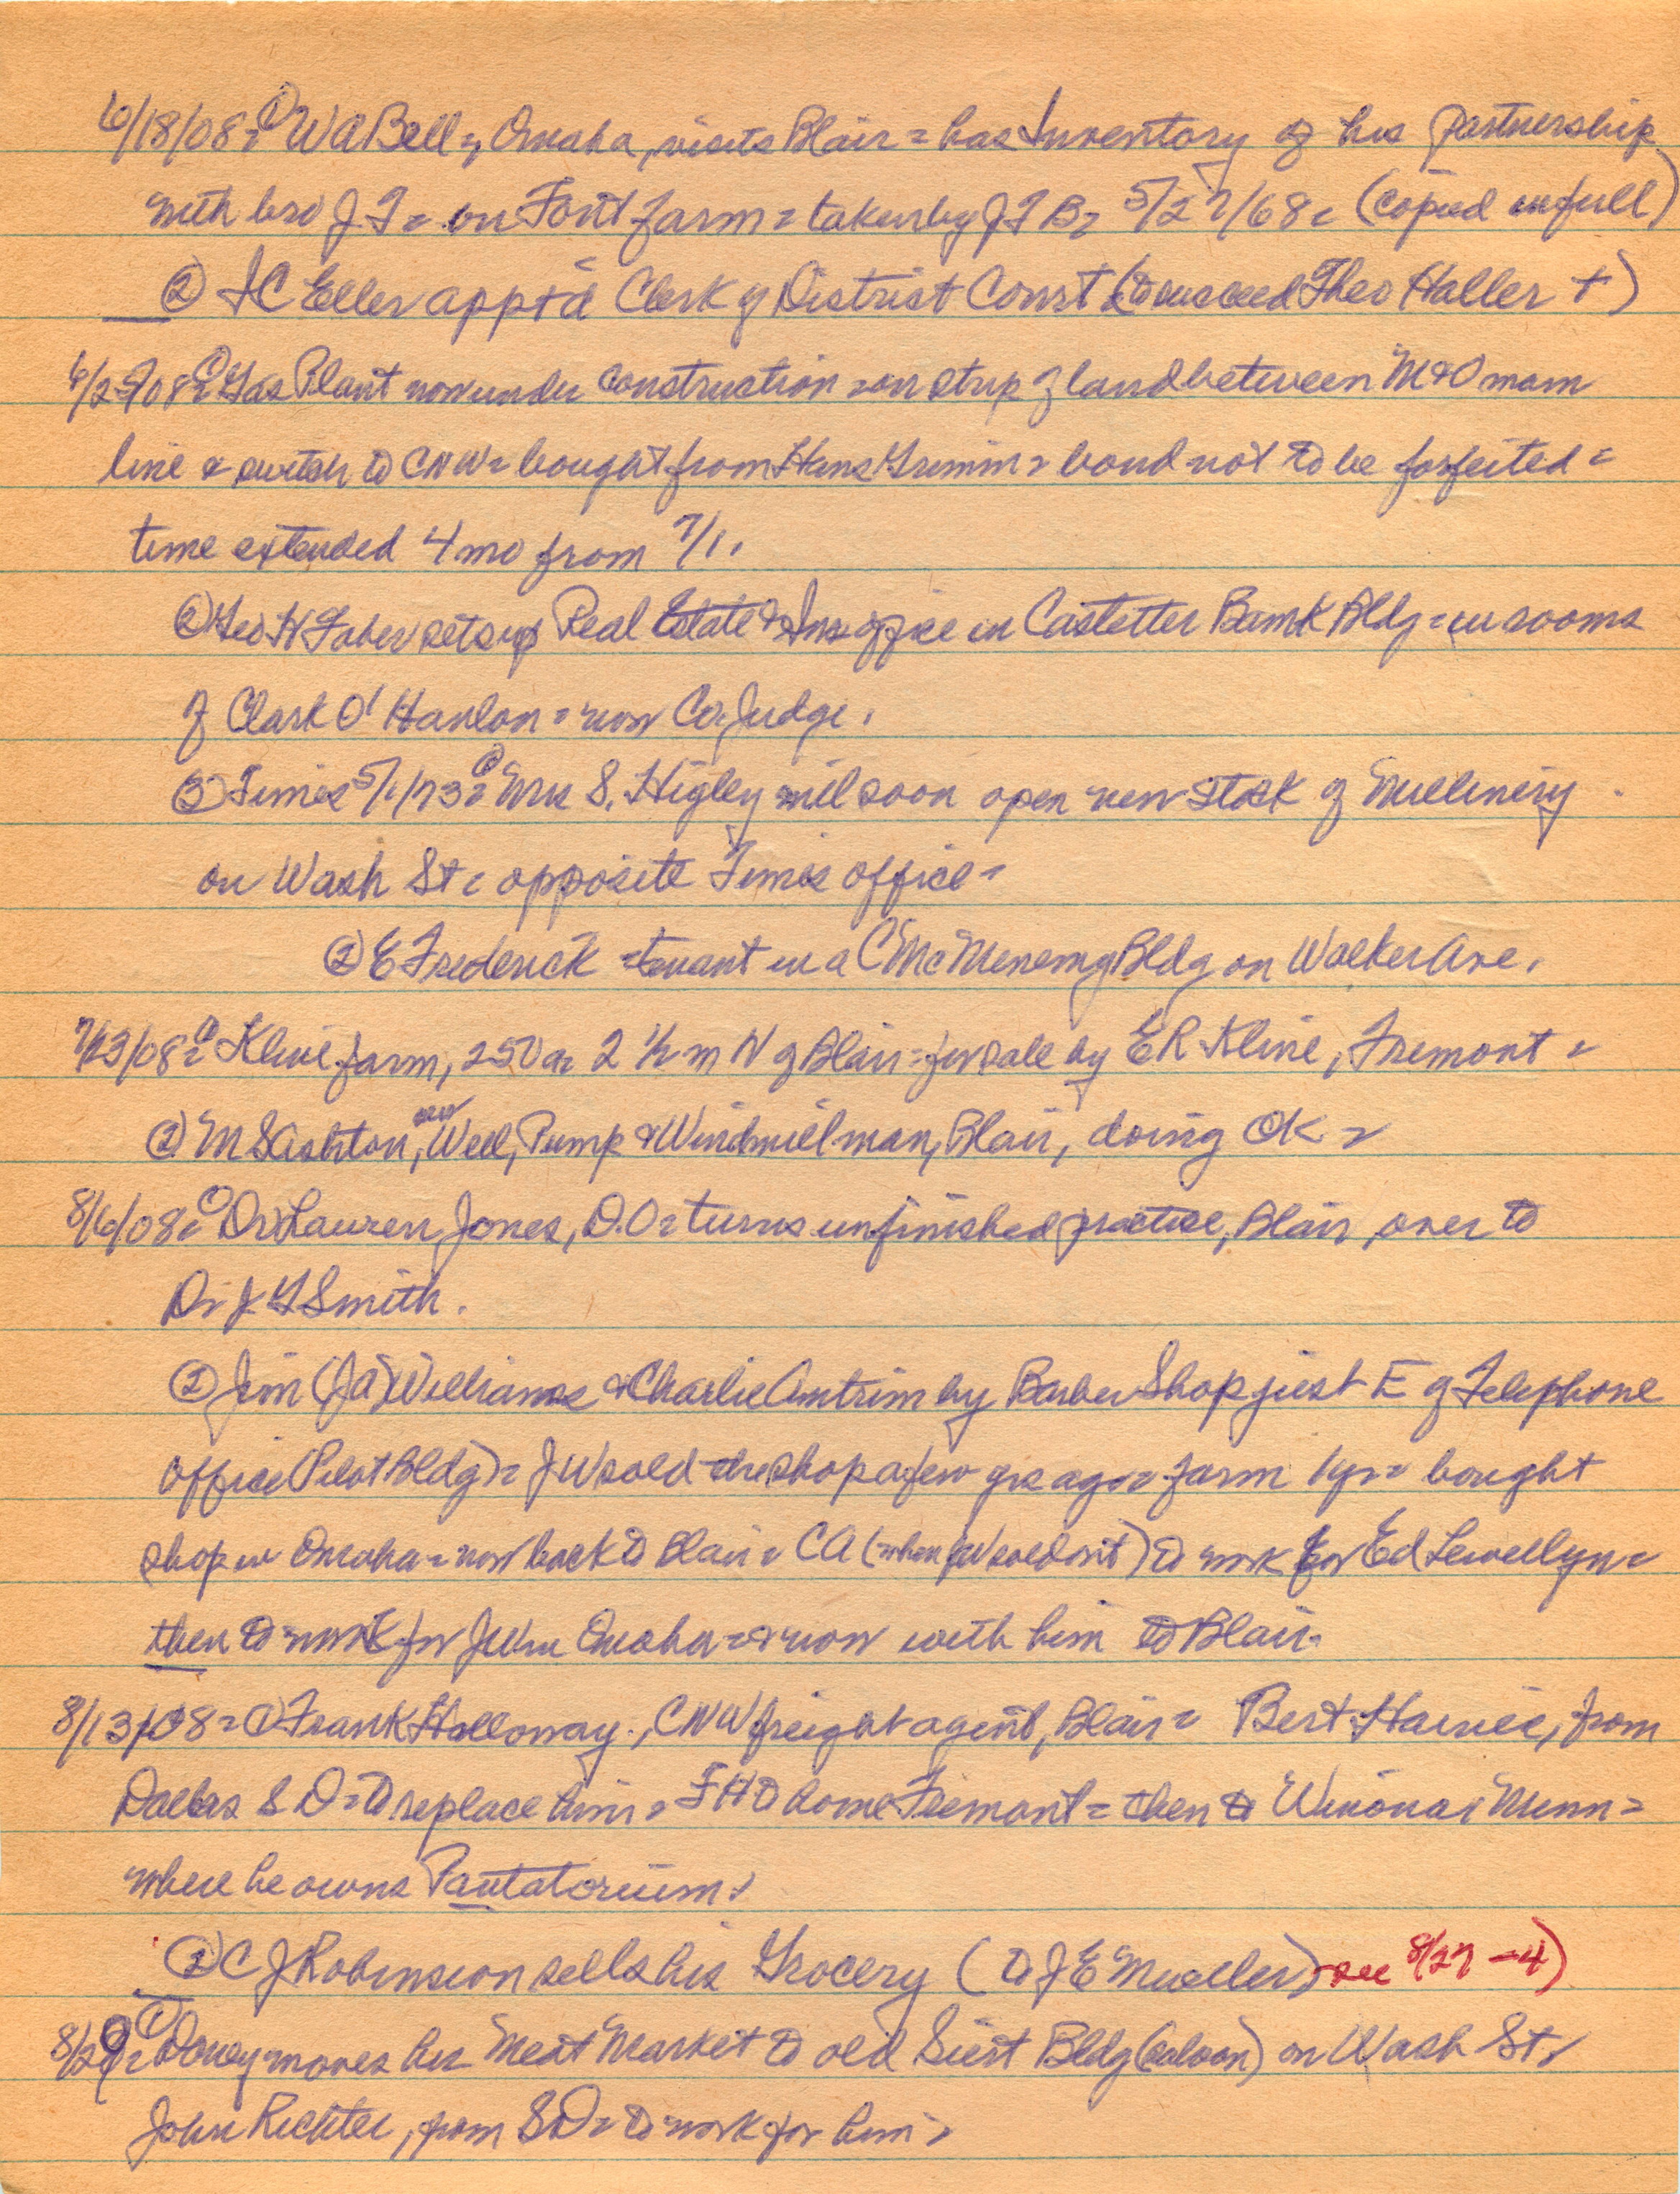 6/18/08 = ① W A Bell, Omaha, visits Blair = has Inventory of his partnership
with bro J T = on Font farm = taken by J T B = 5/27/68 = (copied in full)
② I C Eller appt'd Clerk of District Court (to succeed Theo Haller +)
6/25/08 = ① Gas Plant now under construction = on strip of land between M & O main
line & switch to CNW = bought from Hans Grimm = bond not to be forfeited =
time extended 4 mo from 7/1.
② Geo H Faber sets up Real Estate & Ins office in Castetter Bank Bldg = in rooms
of Clark O'Hanlon = now Co. Judge.
③ Times 5/1/73 = ① Mrs S. Higley will soon open new stock of Millinery
on Wash St = opposite Times office =
② E Frederick = tenant in a C McMenemy Bldg on Walker Ave.
7/23/08 = ① Kline farm, 250 a = 2 1/2 m N of Blair = for sale by E R Kline, Fremont =
② M S Ashton, new Well, Pump & Windmill man, Blair, doing OK =
8/6/08 = ① Dr Lauren Jones, D.O = turns unfinished practice, Blair, over to
Dr J G Smith.
② Jim (J A) Williams & Charlie Antrim by Barber Shop just E of Telephone
office (Pilot Bldg) = J W sold the shop a few yrs ago = farm 1 yr = bought
shop in Omaha = now back to Blair = C A (when J W sold out) to work for Ed Lewellyn =
then to work for J W in Omaha = & now with him to Blair =
8/13/08 = ① Frank Holloway, CNW freight agent, Blair = Bert from
Dallas S D = to replace him = F H to home Fremont = then to Winona, Minn =
where he owns Pantatorium.
② C J Robinson sells his Grocery (to J E Mueller) see 8/27 - 4)
8/20 = ① Dowey moves his Meat Market to old Siert Bldg (saloon) on Wash St =
John Richter, from S D = to work for him =